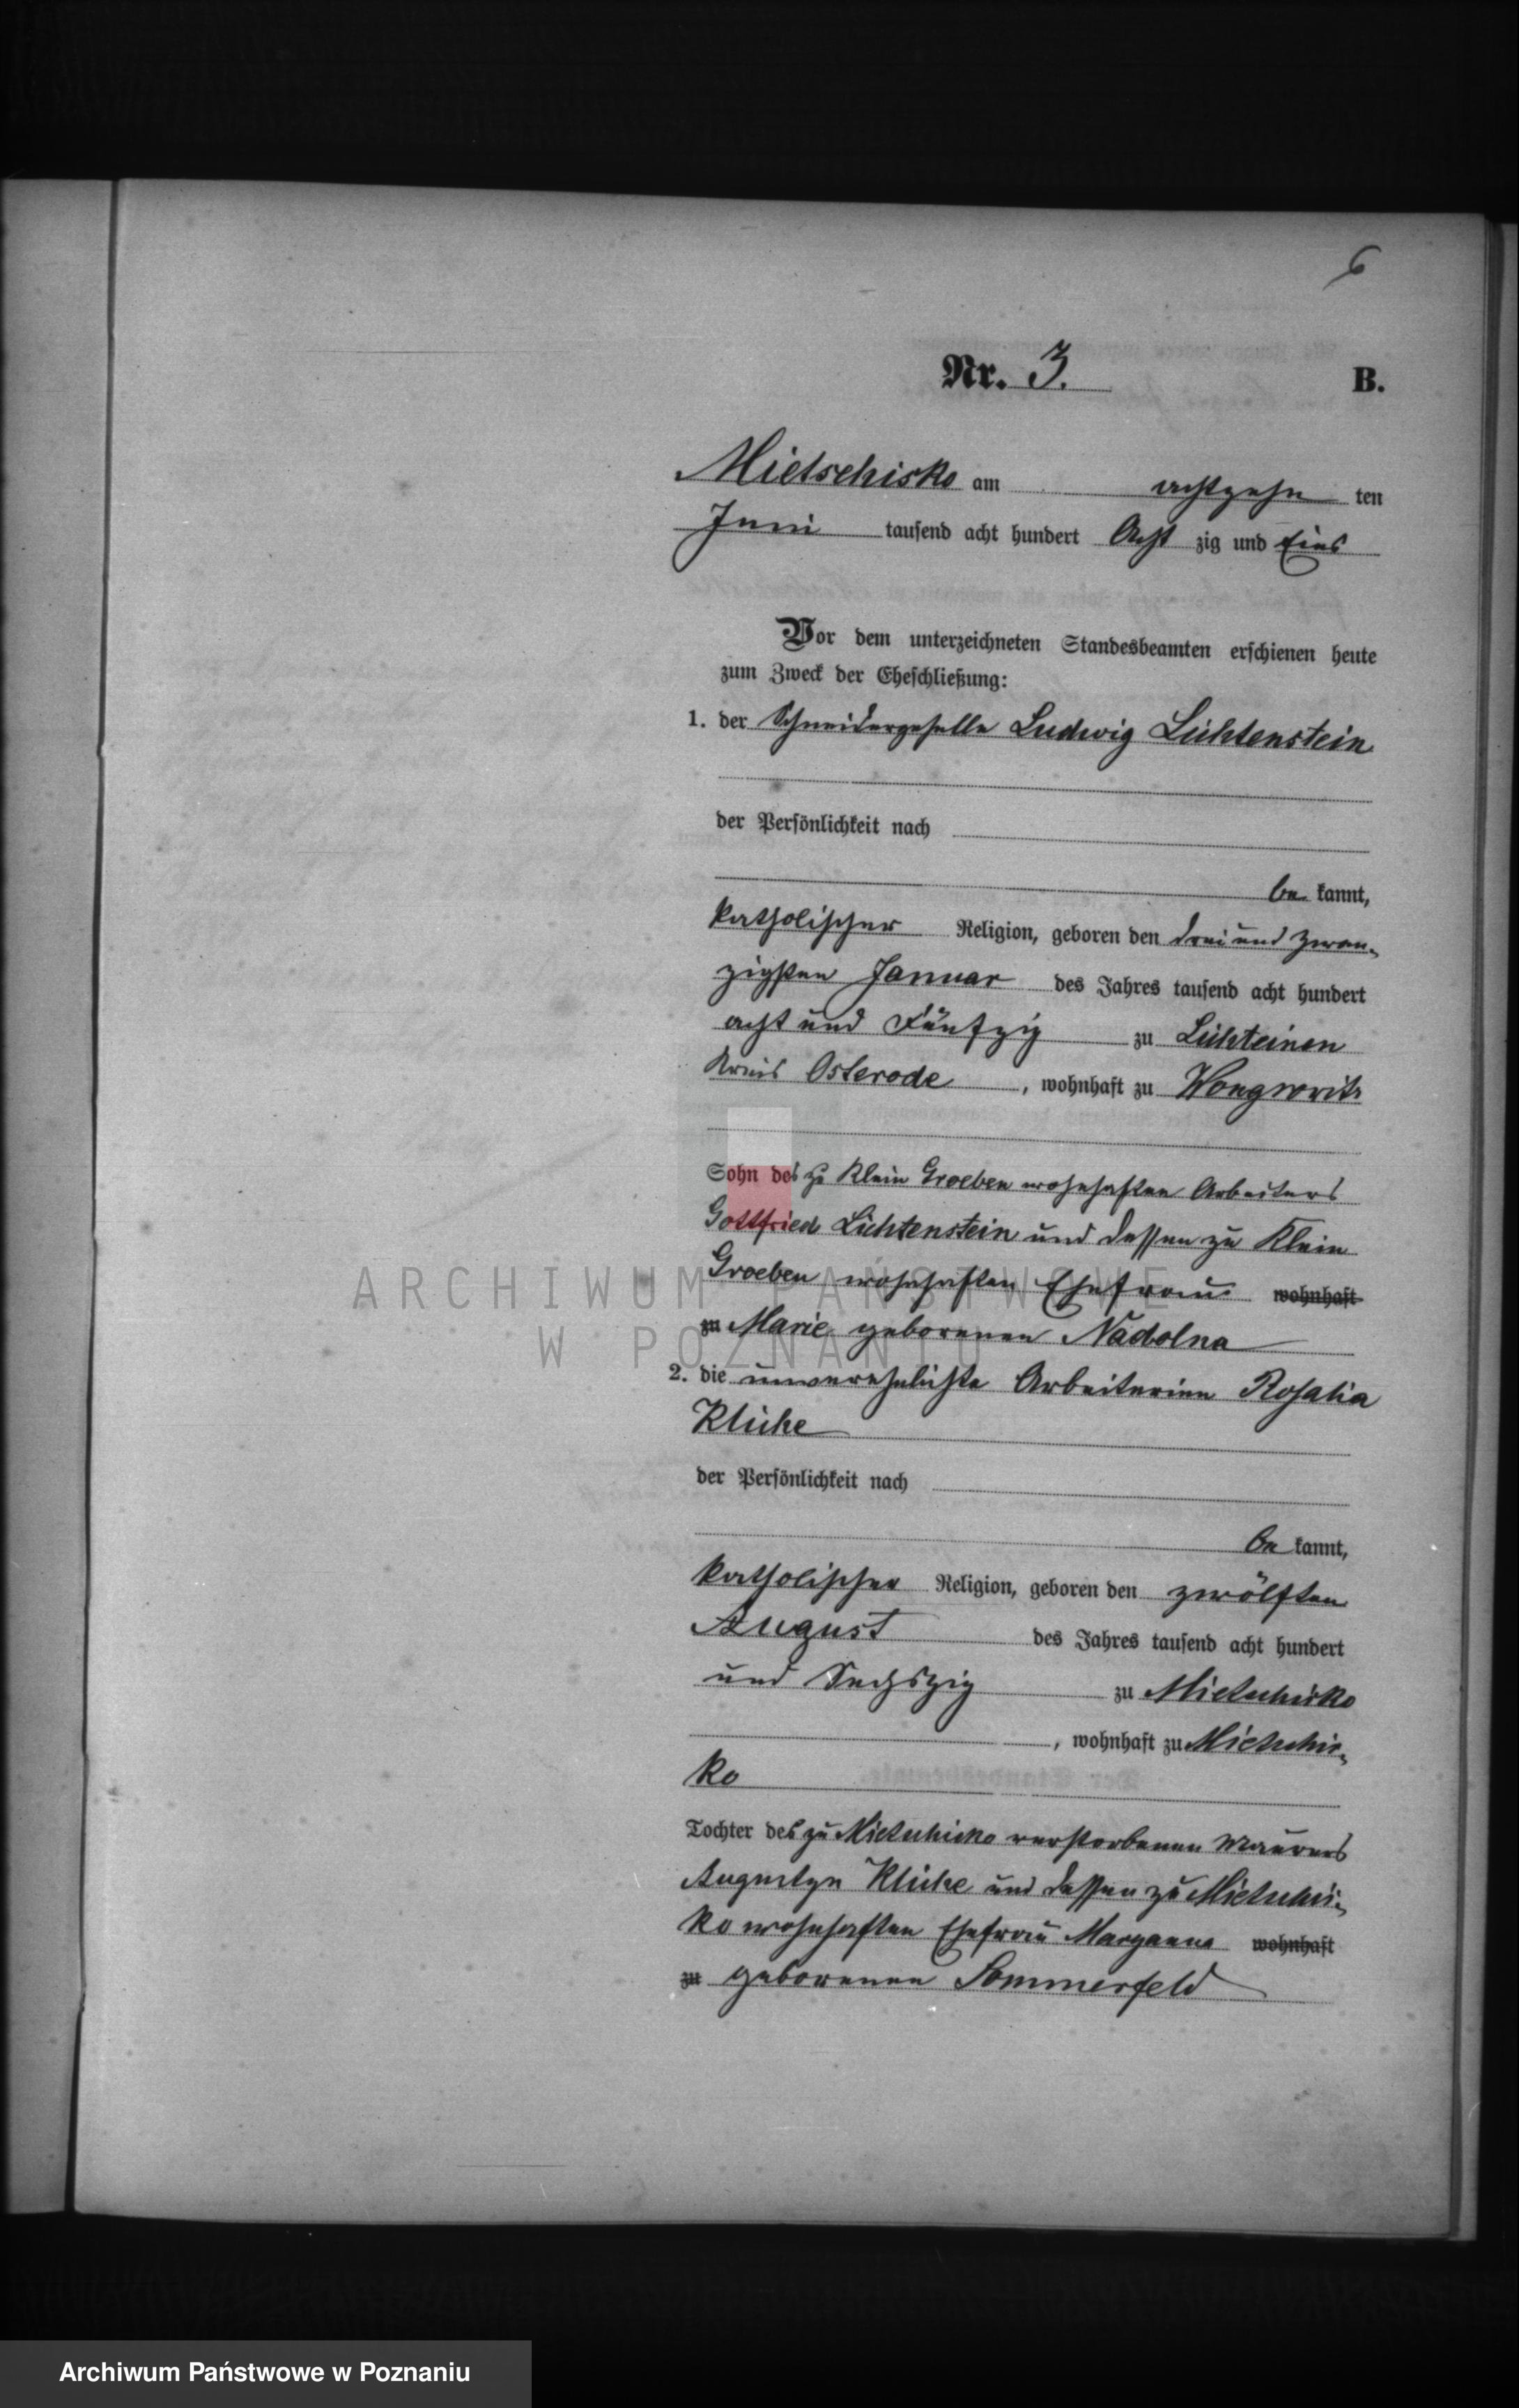 6
Nr. 3. B.
Mietschisko am achtzehn ten
Juni tausend acht hundert Acht zig und Eins
Vor dem unterzeichneten Standesbeamten erschienen heute
zum Zweck der Eheschließung:
1. der Schneidergeselle Ludwig Lichtenstein
der Persönlichkeit nach
be kannt,
katholischer Religion, geboren den drei und zwan-
zigsten Januar des Jahres tausend acht hundert
acht und Fünfzig zu Lichteinen
Kreis Osterode, wohnhaft zu Wongrowitz
Sohn des zu Klein Groeben wohnhaften Arbeiters
Gottfried Lichtenstein und dessen zu Klein
Groeben wohnhaften Ehefrau wohnhaft
zu Marie geborenen Nadolna
2. die unverehelichte Arbeiterinn Rosalia
Kliche
der Persönlichkeit nach
be kannt,
katholischer Religion, geboren den zwölften
August des Jahres tausend acht hundert
und Sechszig zu Mietschisko
, wohnhaft zu Mietschis-
ko
Tochter des zu Mietschisko verstorbenen Maurers
Augustyn Kliche und dessen zu Mietschis-
ko wohnhaften Ehefrau Maryanna wohnhaft
zu geborenen Sommerfeld
ARCHIWUM PAŃSTWOWE
W POZNANIU
Archiwum Państwowe w Poznaniu